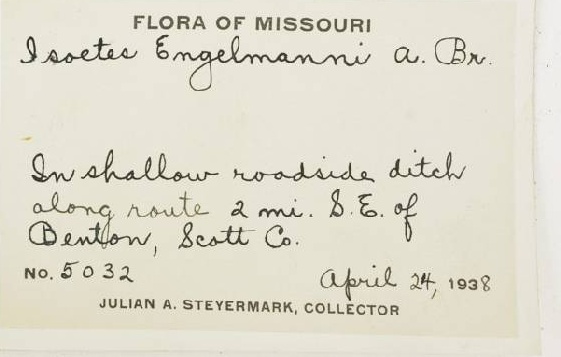 FLORA OF MISSOURI
Isoetes Engelmanni A. Br.
In shallow roadside ditch
along route 2 mi. S.E. of
Benton, Scott Co.
No. 5032 April 24, 1938
JULIAN A. STEYERMARK, COLLECTOR